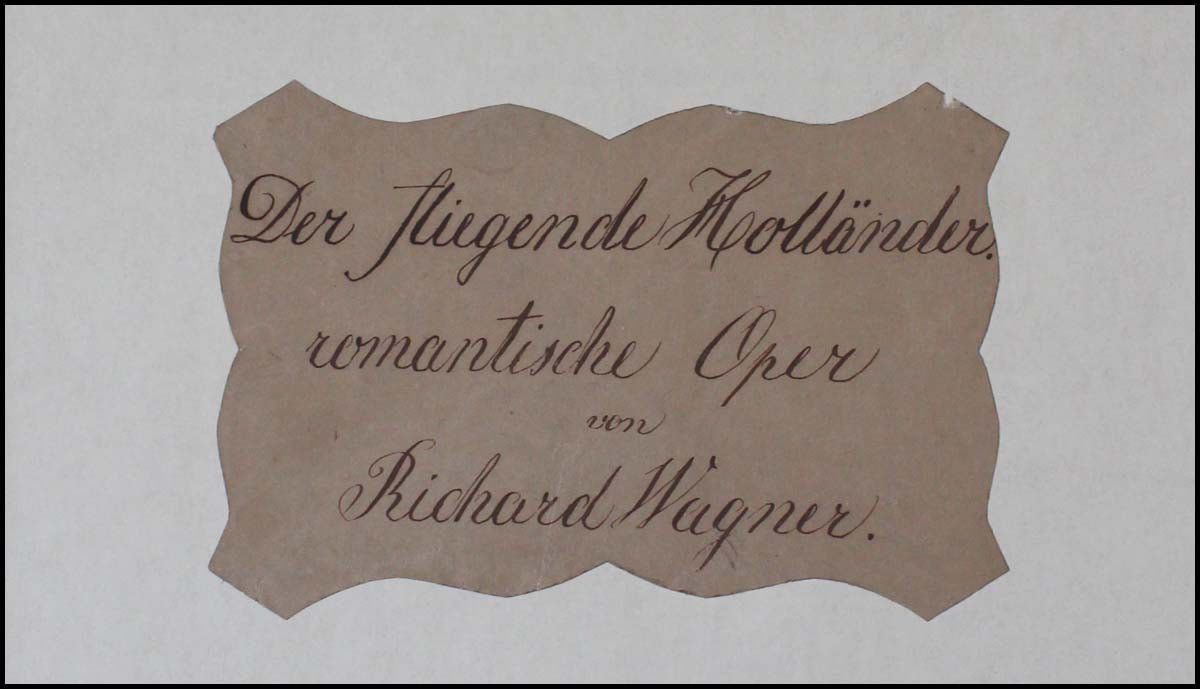 Der fliegende Holländer.
romantische Oper
von
Richard Wagner.